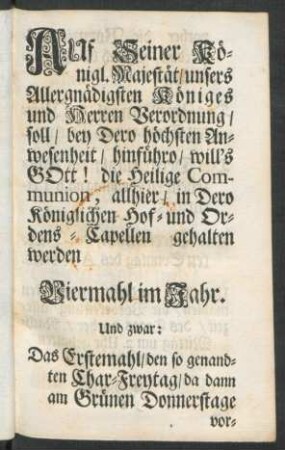 AUf Seiner Kö-
nigl. Majestät/unsers
Allergnädigsten Königes
und Herren Verordnung/
soll/ bey Dero höchsten An-
wesenheit/ hinführo/ will's
GOtt! die Heilige Com-
munion, allhier/ in Dero
Königlichen Hof- und Or-
dens-Capellen gehalten
werden
Viermahl im Jahr.
Und zwar:
Das Erstemahl/den so genand-
ten Char-Freytag/da dann
am Grünen Donnerstage
vor-